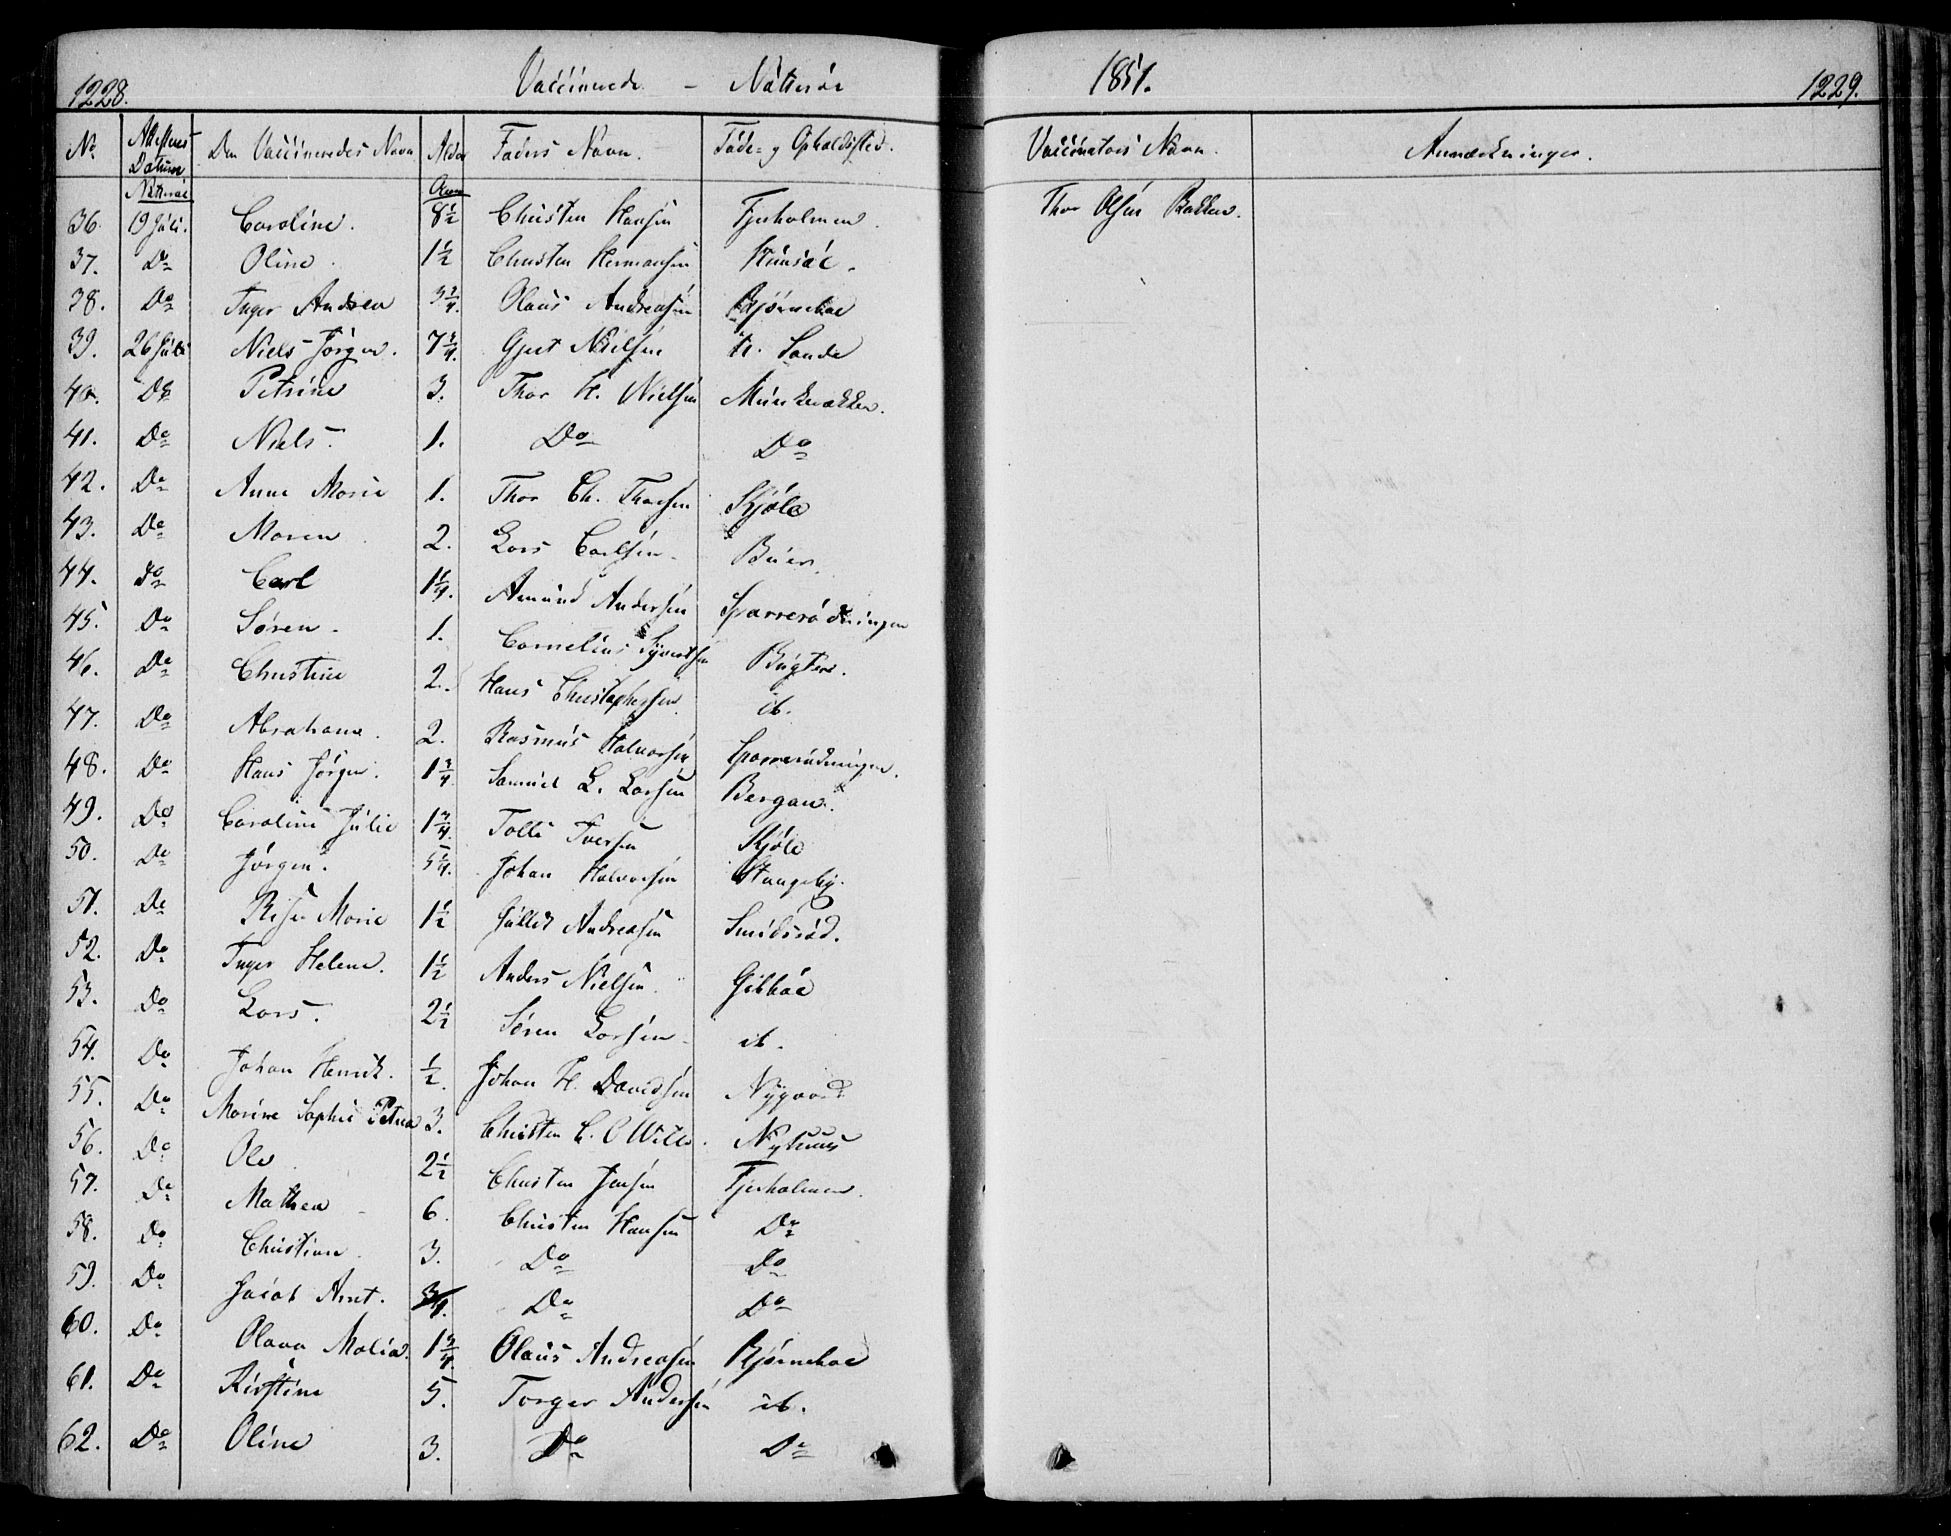 1228. Vaccinerede – Nötterøe 1851. 1229.
No Attestens Datum Den Vaccineredes Navn Alder Faders Navn. Föde- og Opholdssted. Vaccinatørs Navn. Anmærkninger.
Nötterøe Aar
36. 19 Juli. Caroline. 8½ Christen Hansen Fjerholmen. Thor Olsen Bakken.
37. Do Oline. 1½ Christen Hermansen
38. Do Inger Andrea 3¾. Olaus Andreasen Bjørneboe
39. 26 Juli Niels Jørgen. 7¾. Gjert Nielsen N. Sande
40. Do Petrine 3. Thor H. Nielsen Munkerækken.
41. Do Niels. 1. Do Do
42. Do Anne Marie 1. Thor Ch. Thorsen Skjöle
43. Do Maren 2. Lars Carlsen Buer.
44. Do Carl 1¼. Amund Andersen Sparrerödningen
45. Do Søren. 1. Cornelius Syvertsen Bugten.
46. Do Christine 2. Hans Christophersen ib.
47. Do Abraham. 2. Rasmus Halvorsen Sparrerödningen.
48. Do Hans Jørgen. 1¾. Samuel L. Larsen Bergan.
49. Do Caroline Julie 1¾. Tolle Iversen Skjöle
50. Do Jørgen. 5¼. Johan Halvorsen Stangeby.
51. Do Marie 1½ Gullik Andreasen Smidsröd.
52. Do Inger Helene. 1½ Anders Nielsen. Gibböe
53. Do Lars. 2½ Søren Larsen ib.
54. Do Johan Henrik. ½. Johan H. Davidsen Nygaard
55. Do Marine Sophie Petrea 3. Christen C. Wille. Nyhuus
56. Do Ole 2½ Christen Jensen Fjerholmen.
57. Do Mathea 6. Christen Hansen Do
58. Do Christian 3. Do Do
59. Do Jacob Arnt. ¾. Do Do
60. Do Olava Malia. 1¾. Olaus Andreasen Bjørneboe
61. Do Kirstine 5. Torger Andersen ib.
62. Do Oline 3. Do Do